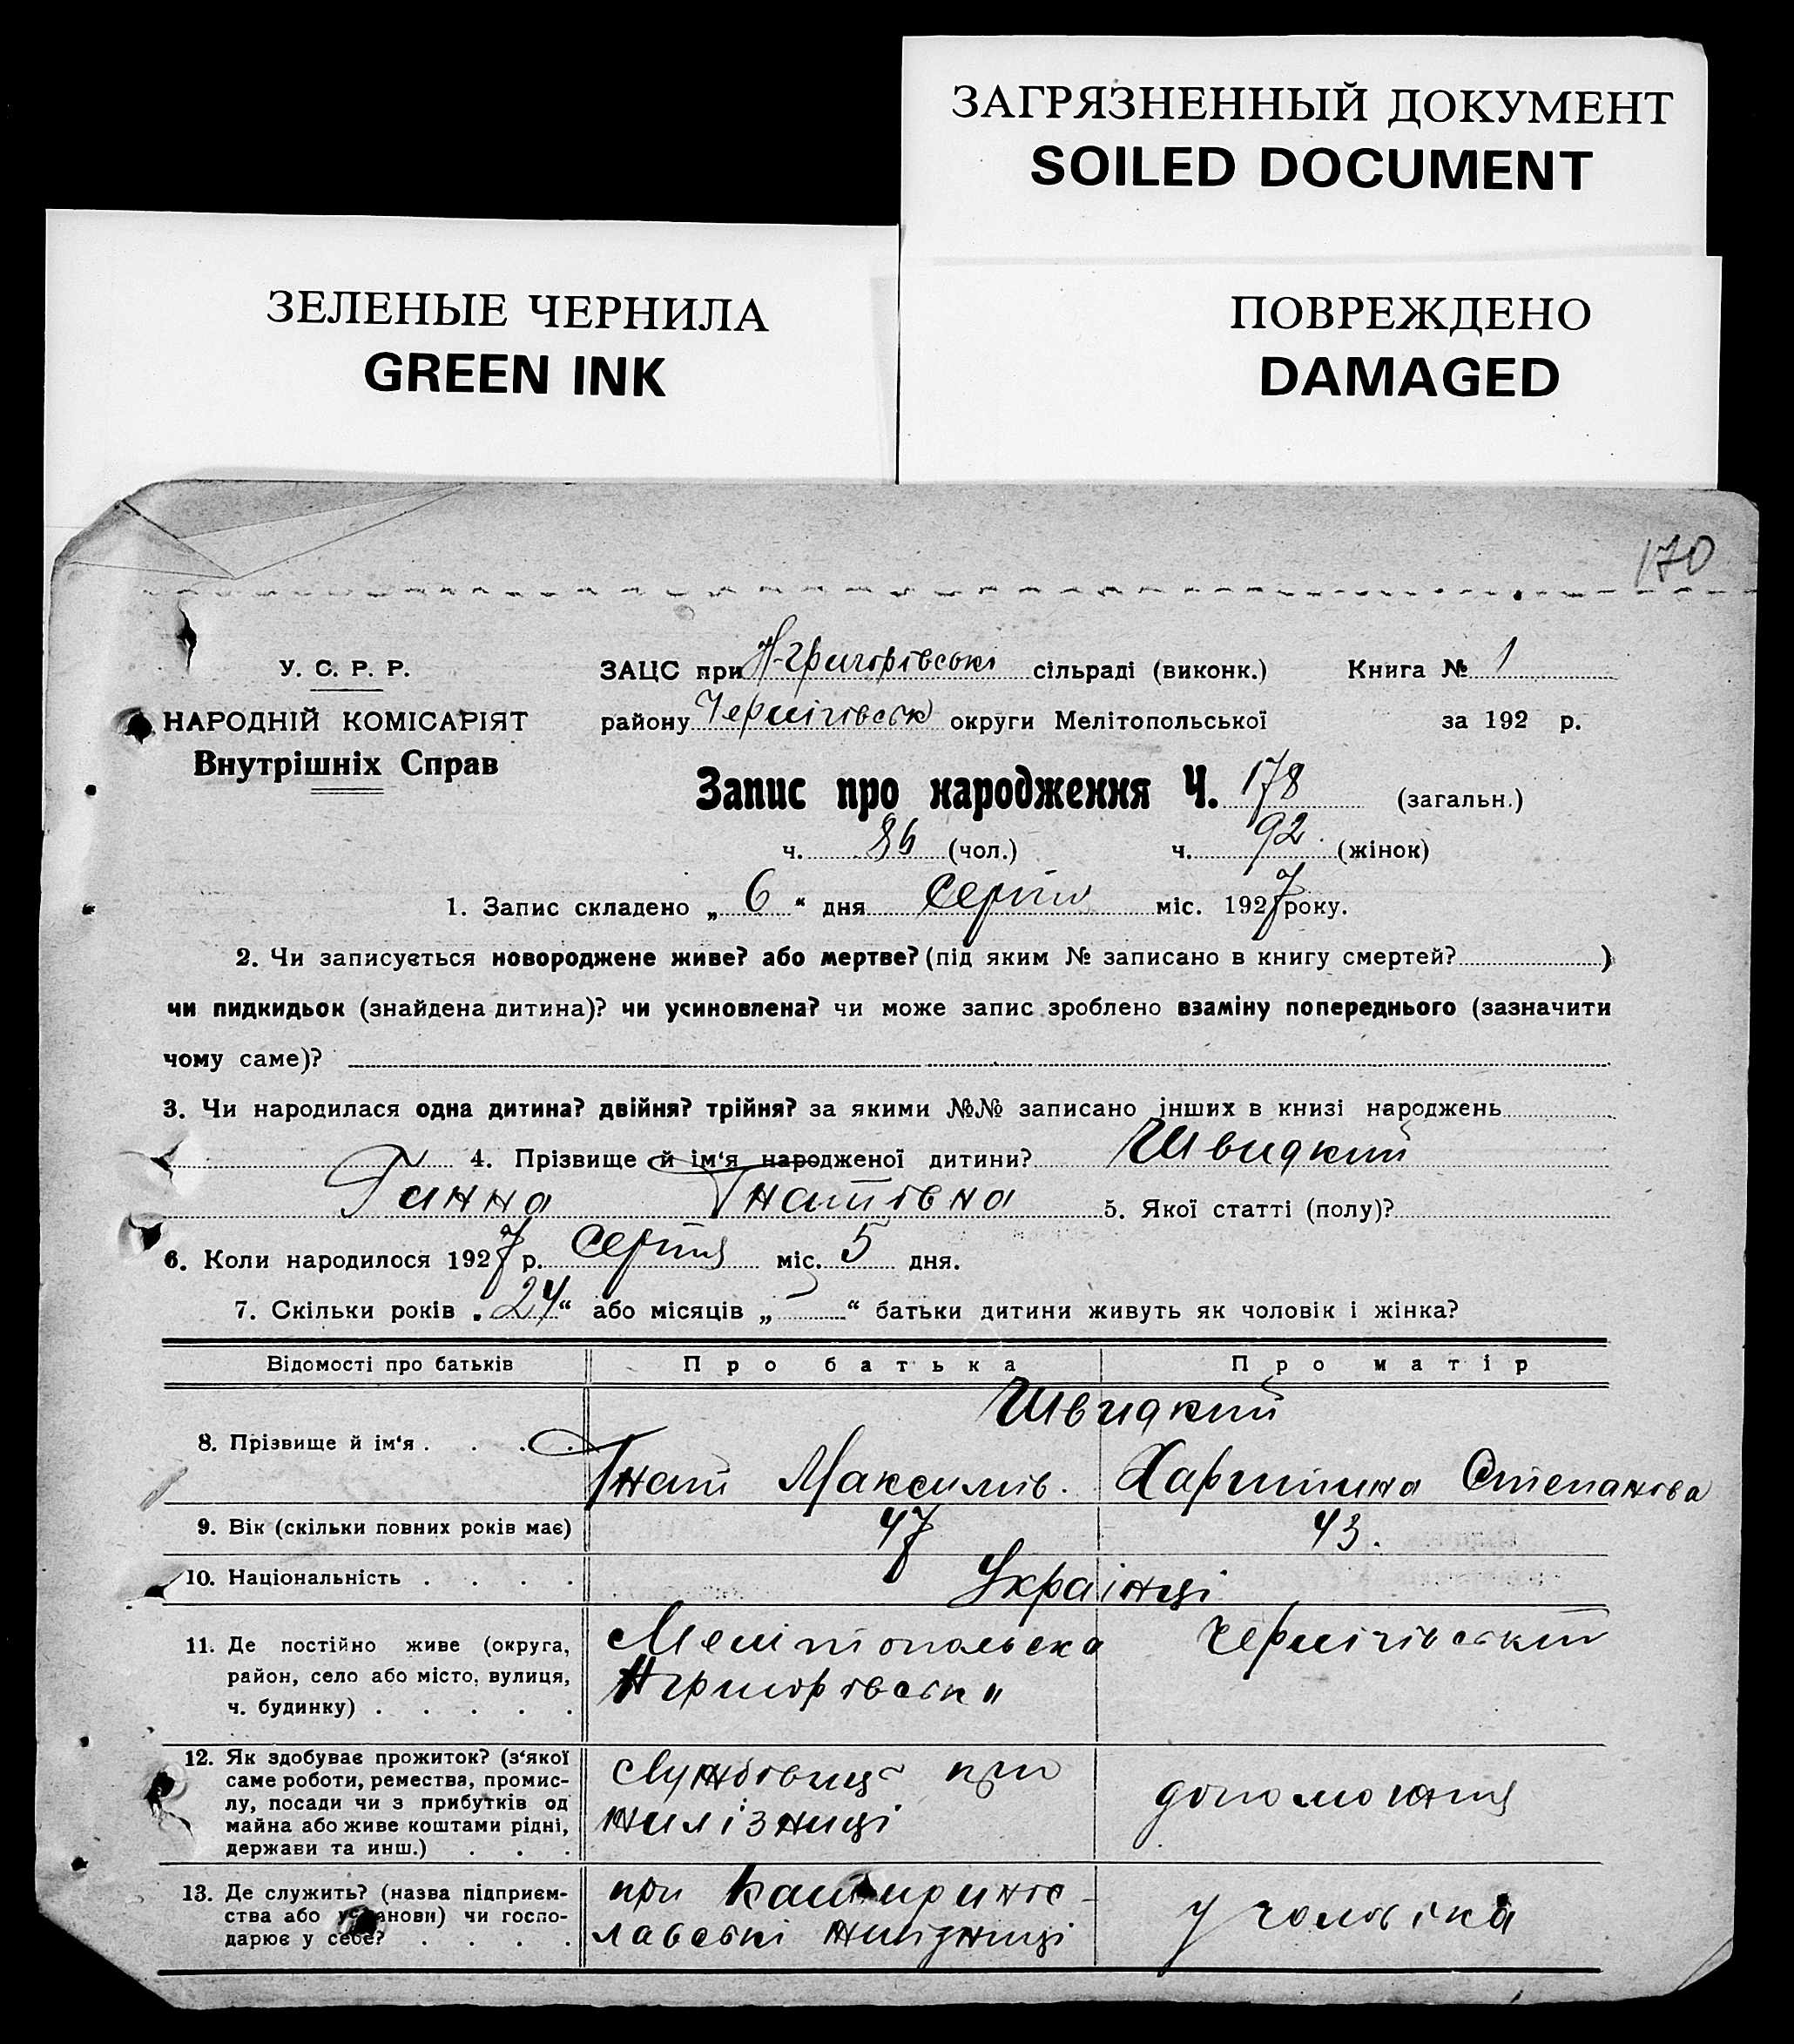 ЗАГРЯЗНЕННЫЙ ДОКУМЕНТ
SOILED DOCUMENT
ЗЕЛЕНЫЕ ЧЕРНИЛА
GREEN INK
ПОВРЕЖДЕНО
DAMAGED
170
У. С. Р. Р.
НАРОДНІЙ КОМІСАРІЯТ
Внутрішніх Справ
ЗАЦС при Н-Григорівські сільраді (виконк.) Книга № 1
району Чернігівськ округи Мелітопольської за 192 р.
Запис про народження Ч. 178 (загальн.)
ч. 86 (чол.) ч. 92 (жінок)
1. Запис складено „ 6 “ дня Серпня міс. 1927 року.
2. Чи записується новороджене живе? або мертве? (під яким № записано в книгу смертей? )
чи пидкидьок (знайдена дитина)? чи усиновлена? чи може запис зроблено взаміну попереднього (зазначити
чому саме)?
3. Чи народилася одна дитина? двійня? трійня? за якими №№ записано інших в книзі народжень
4. Прізвище й ім‘я народженої дитини? Швидкий
Ганна Гнатівна 5. Якої статті (полу)?
6. Коли народилося 1927 р. Серпня міс. 5 дня.
7. Скільки років „ 24 “ або місяців „ “ батьки дитини живуть як чоловік і жінка?
Відомості про батьків Про батька Про матір
Швидкий
8. Прізвище й ім‘я . . . . Гнат Максимів. Харитина Степанова
9. Вік (скільки повних років має) 47 43.
10. Національність . . . . Украінці
11. Де постійно живе (округа, район, село або місто, вулиця, ч. будинку) . . . . . Мелітопольска Чернігівський
Нгригорівськ
12. Як здобуває прожиток? (з‘якої саме роботи, ремества, промис-
лу, посади чи з прибутків од
майна або живе коштами рідні,
держави та инш.) . . . Службовиц при
жилізниці
допоможня
13. Де служить? (назва підприєм-
ства або установи) чи госпо-
дарює у себе? . . . . при Катирино-
лавські
у чоловіка